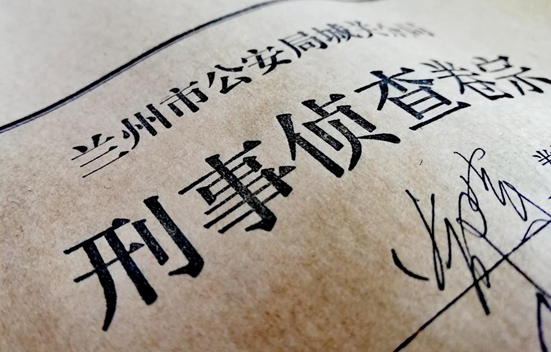 兰州市公安局城关分局
刑事侦查卷宗